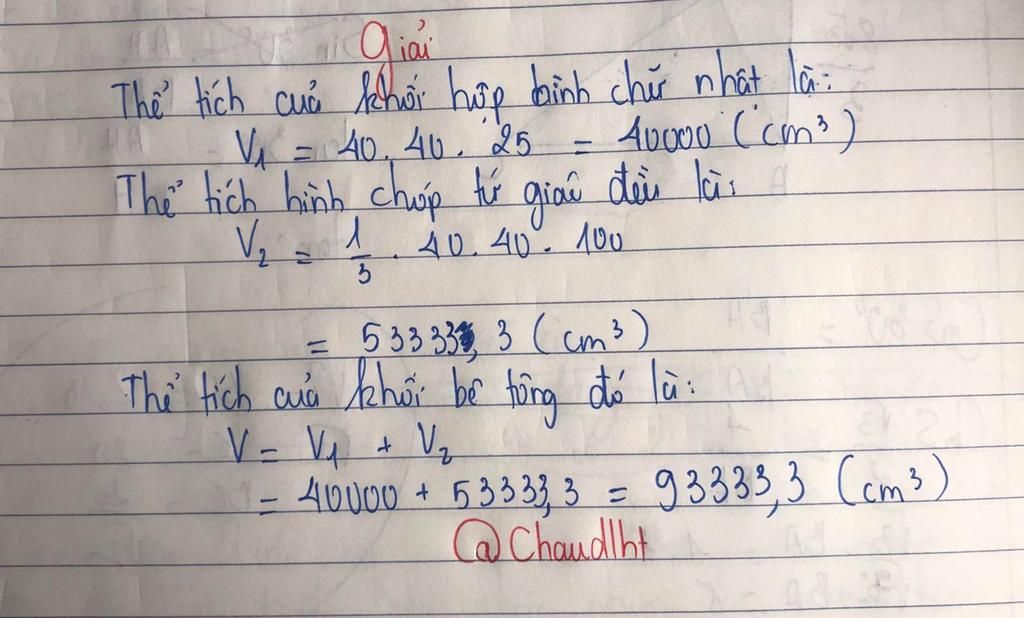 Giải
Thể tích của khối hộp hình chữ nhật là:
V₁ = 40. 40. 25 = 40000 (cm³)
Thể tích hình chóp tứ giác đều là:
V₂ = 1/3 . 40. 40. 100
= 53333, 3 (cm³)
Thể tích của khối bê tông đó là:
V = V₁ + V₂
= 40000 + 53333, 3 = 93333, 3 (cm³)
@Chaudlht